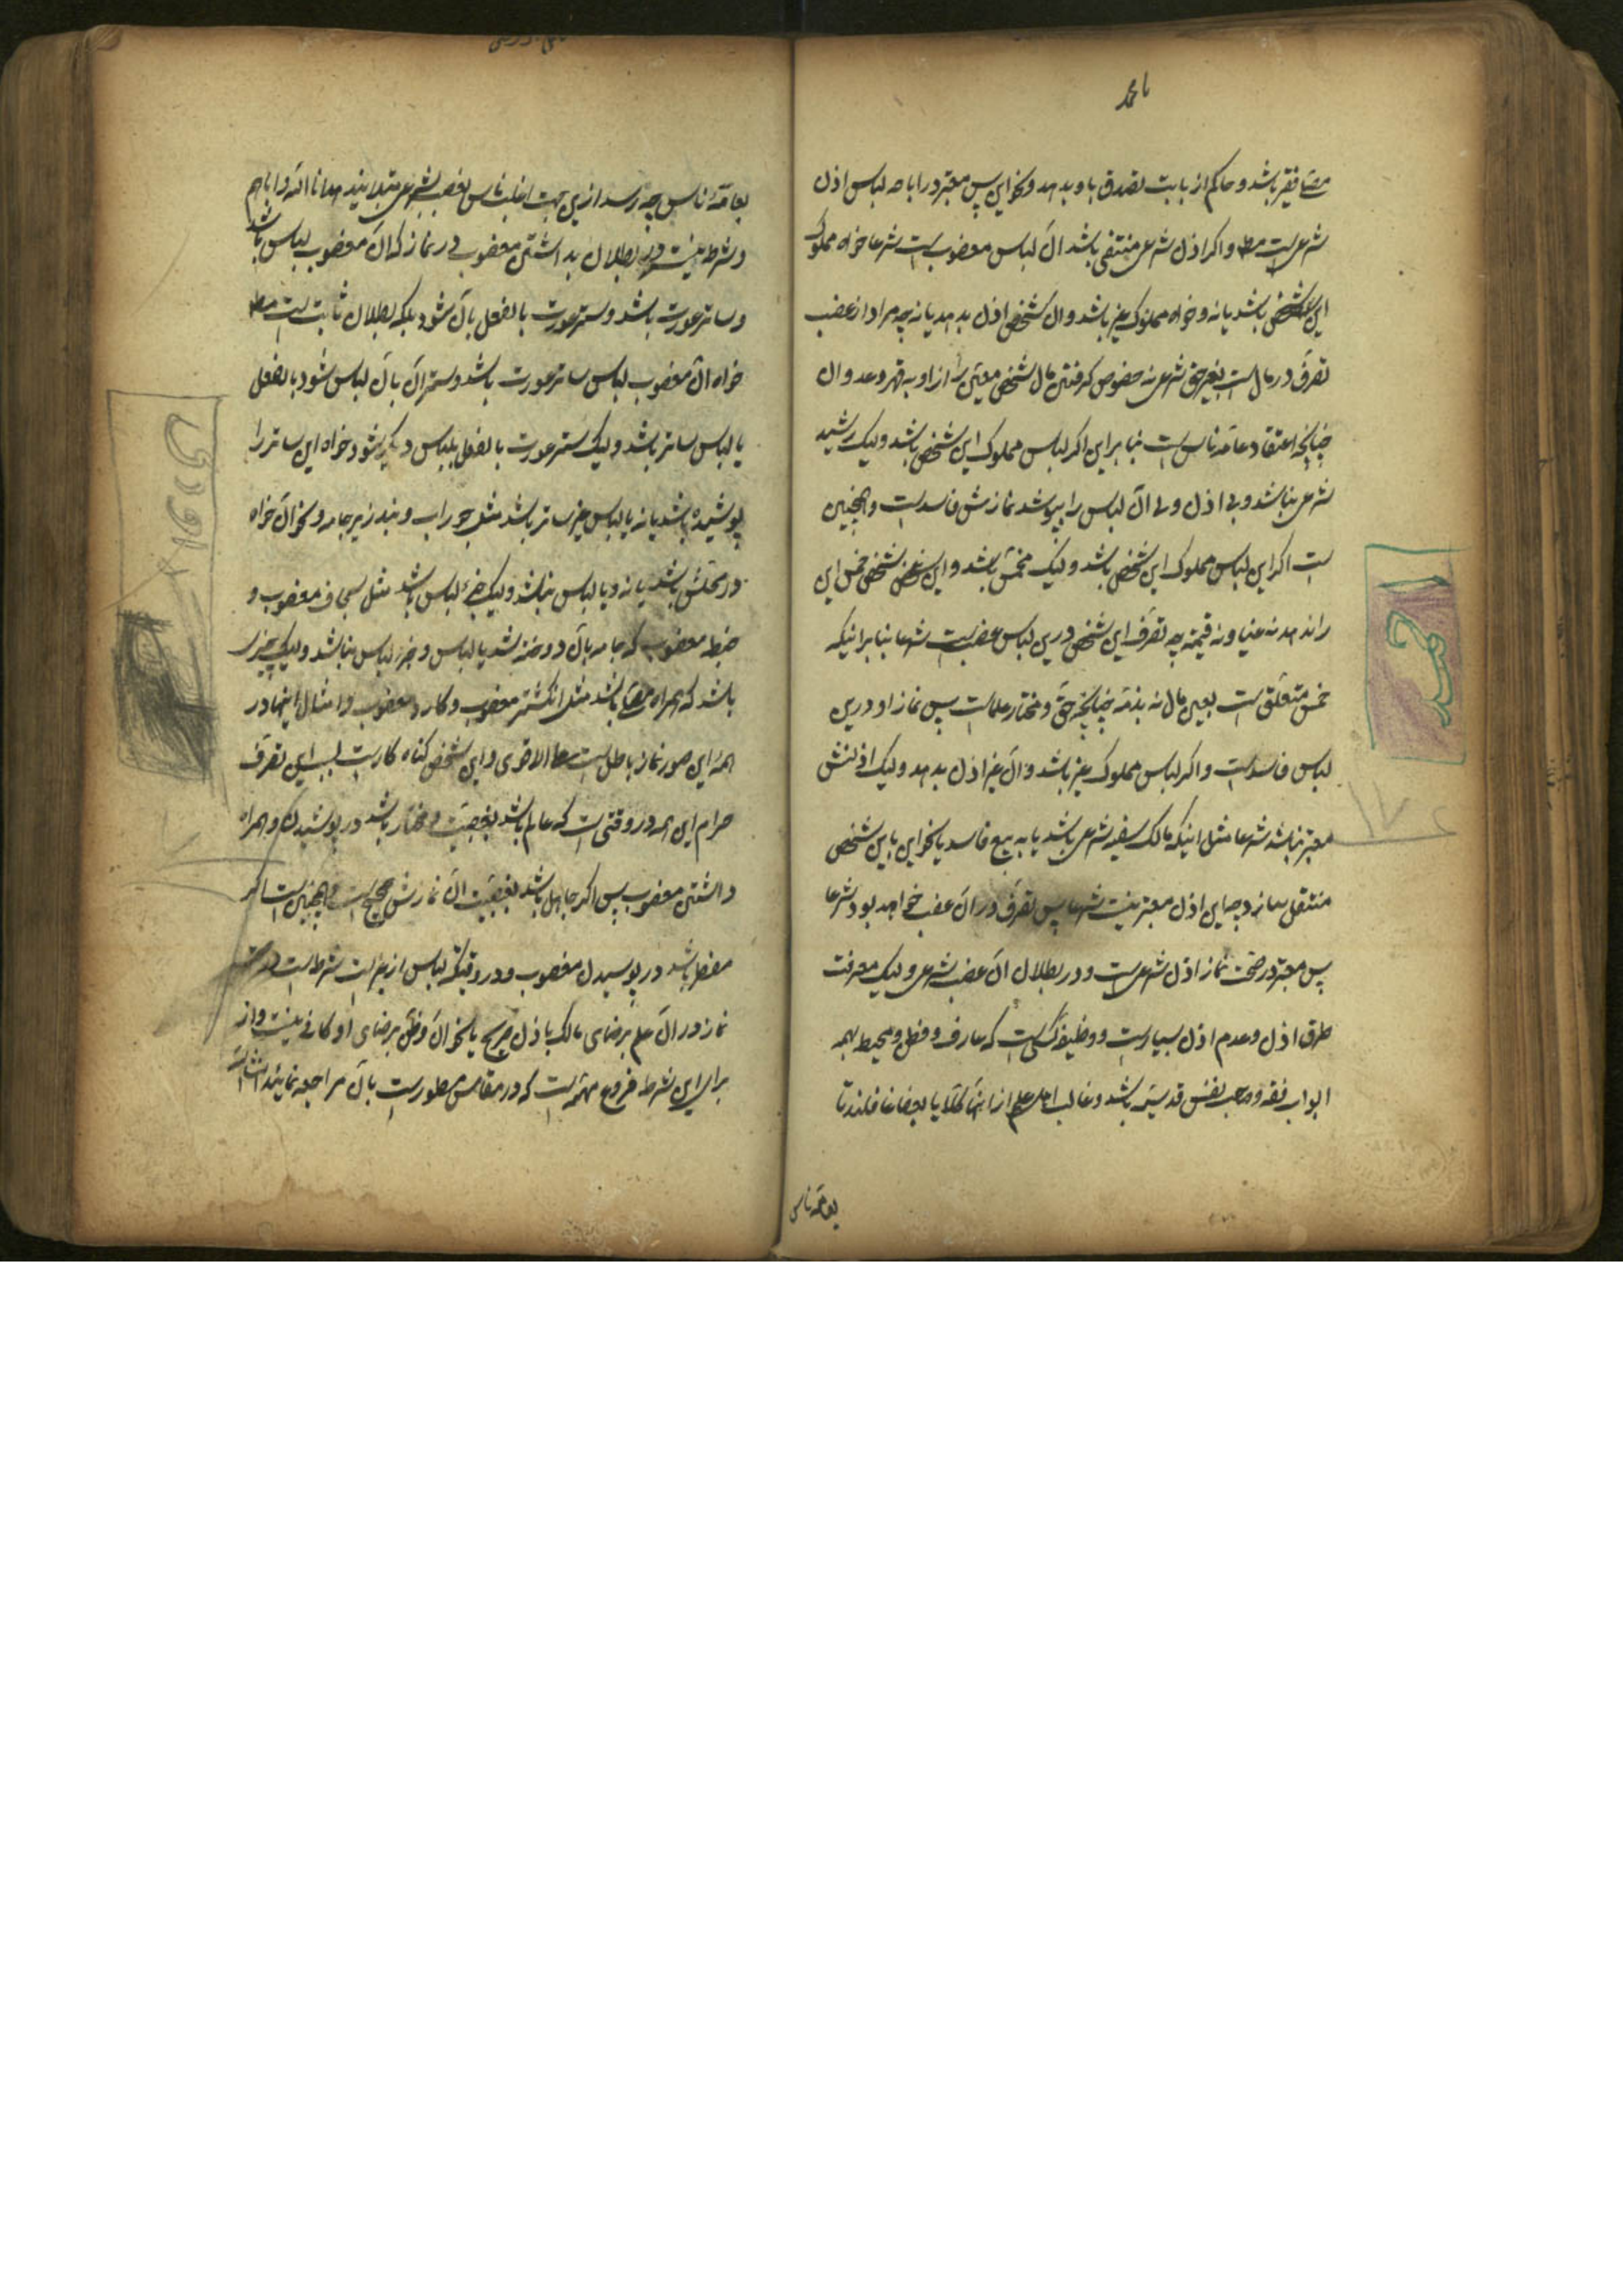 یا محمد
مصلی فقیر باشد و حاکم از بابت تصدق باو بدهد و نحو این پس معتبر در اباحه لباس اذن
شرعی است مط و اگر اذن شرعی منتفی باشد آن لباس مغصوب است شرعا خواه مملوک
این شخص باشد یا نه و خواه مملوک غیر باشد و آن شخص اذن بدهد یا نه چه مراد از غصب
تصرف در مال است بغیر حق شرعی نه خصوص گرفتن مال شخص معین از او به قهر و عدوان
چنانچه اعتقاد عامه ناس است بنا براین اگر لباس مملوک این شخص باشد ولیک رشید
شرعی نباشد و بی اذن ولی آن لباس را بپوشد نمازش فاسد است و همچنین
است اگر این لباس مملوک این شخص باشد ولیک مخمس باشد و این شخص خمس این
را ندهد نه عینا و نه قیمة چه تصرف این شخص درین لباس غصب است شرعا بنا برانیکه
خمس متعلق است بعین مال نه بذمه چنانچه حق و مختار علماست پس نماز او درین
لباس فاسد است و اگر لباس مملوک غیر باشد و آن غیر اذن بدهد ولیک اذنش
معتبر نباشد شرعا مثل اینکه مالک سفیه شرعی باشد یا به بیع فاسد یا نحو این باین شخص
منتقل سازد چه این اذن معتبر نیست شرعا پس تصرف در آن غصب خواهد بود شرعا
پس معتبر در صحت نماز اذن شرعی است و در بطلان آن غصب شرعی ولیک معرفت
طرق اذن و عدم اذن بسیار است و وظیفه کسی است که عارف و فطن و محیط بهمه
ابواب فقه و صاحب نفس قدسیه باشد و غالب اهل علم از اینها کلا یا بعضا غافلند تا
بعامه ناس
بعامه ناس چه رسد ازین جهت اغلب ناس بغصب شرعی مبتلایند هدانا الله و ایاهم
و شرط نیست در بطلان بداشتن مغصوب در نماز که آن مغصوب لباس باشد
و ساتر عورت باشد و ستر عورت بالفعل بآن شود بلکه بطلان ثابت است مط
خواه آن مغصوب لباس ساتر عورت باشد و ستر آن بآن لباس شود بالفعل
یا لباس ساتر باشد ولیک ستر عورت بالفعل بلباس دیگر شود خواه این ساتر را
پوشیده باشد یا نه یا لباس غیر ساتر باشد مثل جوراب و بند زیر جامه و نحو آن خواه
در محلش باشد یا نه و یا لباس نباشد ولیک جزء لباس باشد مثل سجاف مغصوب و
خیط مغصوب که جامه بآن دوخته شد یا لباس و جزء لباس نباشد ولیک چیزی
باشد که همراه مصلی باشد مثل انگشتر مغصوب و کارد مغصوب و امثال اینها در
همه این صور نماز باطل است علی الاقوی و این شخص گناه کار است بسبب این تصرف
حرام این همه در وقتی است که عالم باشد بغصبیت و مختار باشد در پوشیدن و همراه
داشتن مغصوب پس اگر جاهل باشد بغصبیت آن نمازش صحیح است و همچنین است اگر
مضطر باشد در پوشیدن مغصوب و در وقتیکه لباس از غیر است شرط است در صحت
نماز در آن علم برضای مالک یا اذن صریح یا نحو آن و ظن برضای او کافی نیست و از
برای این شرط فروع مهمه است که در مقامش مسطور است بآن مراجعه نمایند انشاء الله